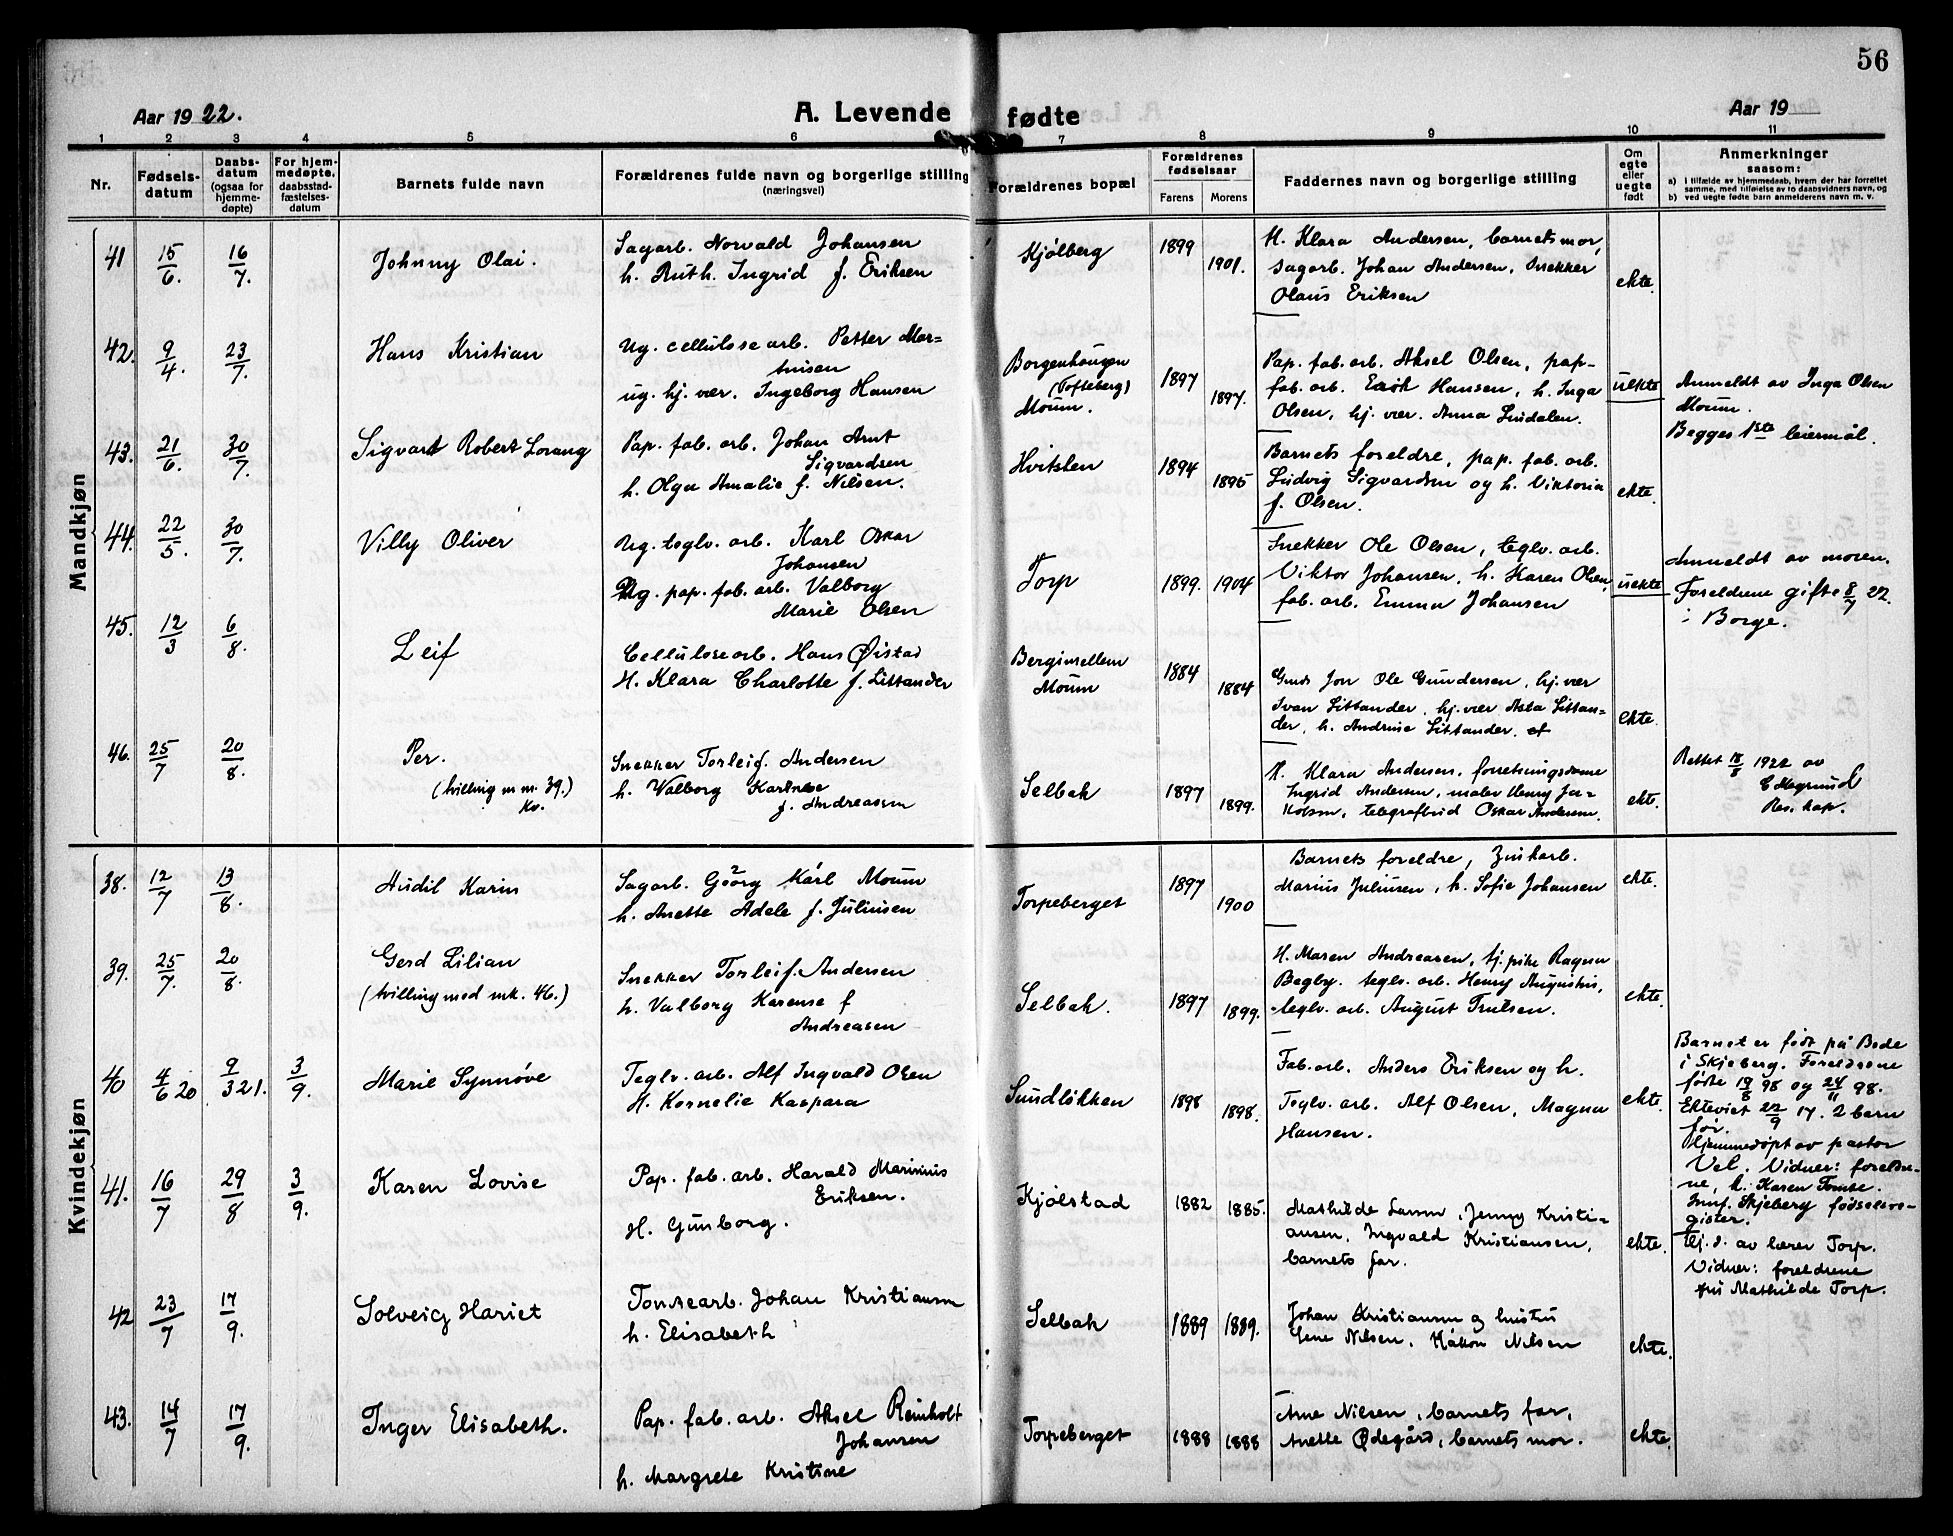 56
Aar 1922.
A. Levende fødte
Aar 19
1 2 3 4 5 6 7 8 9 10 11
Nr.
Fødsels-
datum
Daabs-
datum
(ogsaa for
hjemme-
døpte)
For hjem-
medøpte,
daabsstad-
fæstelses-
datum
Barnets fulde navn
Forældrenes fulde navn og borgerlige stilling
(næringsvei)
Forældrenes bopæl
Forældrenes
fødselsaar
Farens Morens
Faddernes navn og borgerlige stilling
Om
egte
eller
uegte
født
Anmerkninger
saasom:
a) i tilfælde av hjemmedaab, hvem der har forrettet
samme, med tilføielse av to daabsvidners navn, og
b) ved uegte fødte barn anmelderens navn m. v.
Mandkjøn
41 15/6. 16/7. Johnny Olai.
Sagarb. Norvald Johansen
h. Ruth. Ingrid f. Eriksen
Kjølberg 1899 1901.
H. Klara Andersen, barnets mor,
sagarb. Johan Andersen, snekker
Olaus Eriksen
ekte.
42. 9/4. 23/7. Hans Kristian
Ug. cellulosearb. Petter Mar-
tinsen
ug. hj. vær. Ingeborg Hansen
Borgenhaugen
(Tofteberg)
Moum.
1897 1897.
Pap. fab. arb. Aksel Olsen, pap-
fab. arb. Hansen, h. Inga
Olsen, hj. vær. Anna Lindalen.
uekte
Anmeldt av Inga Olsen
Moum.
Begges 1ste leiermål.
43. 21/6. 30/7. Sigvart Robert Lorang
Pap. fab. arb. Johan Arnt
Sigvardsen
h. Olga Amalie f. Nilsen.
Hvitsten 1894 1895
Barnets foreldre, pap. fab. arb.
Ludvig Sigvardsen og h. Viktoria
f. Olsen.
ekte.
44. 22/5. 30/7. Villy Oliver
Ug. teglv. arb. Karl Oskar
Johansen
Ug. pap. fab. arb. Valborg
Marie Olsen
Torp 1899. 1904
Snekker Ole Olsen, teglv. arb.
Viktor Johansen, h. Karen Olsen,
fab. arb. Emma Johansen
uekte
Anmeldt av moren.
Foreldrene gifte 8/7 22.
i Borge.
45. 12/3 6/8. Leif
Cellulosearb. Hans Øistad
H. Klara Charlotte f. Littander
Moum
1884 1884
Ole Gundersen, hj. vær
Ivan Littander, hj. vær Asta Littan-
der, h. Andrine Littander.
ekte.
46. 25/7 20/8. Per.
(tvilling m nr. 39.)
kv.
Snekker Torleif. Andersen
h. Valborg Karense
f. Andreassen
Selbak 1897 1899.
H. Klara Andersen, forretningsdame
Ingrid Andersen, maler Henry Ja-
kobsen, telegrafbud Oskar Andersen.
ekte.
Rettet 18/8 1922 av
Res. kap.
Kvindekjøn
38. 12/7 13/8. Audil Karin
Sagarb. Georg Karl Moum
h. Anette Adele f. Juliusen
Torpeberget 1897 1900
Barnets foreldre, Zinkarb.
Marius Juliusen, h. Sofie Johansen
ekte.
39. 25/7. 20/8. Gerd Lilian
(tvilling med mk. 46.)
Snekker Torleif. Andersen
h. Valborg Karense f
Andreasen
Selbak. 1897 1899.
H. Maren Andreasen, tj. pike Ragna
Begby. teglv. arb. Henry Augustus,
teglv. arb. August Trulsen.
ekte.
40 4/6 20 9/3 21. 3/9. Marie Synnøve
Teglv. arb. Alf Ingvald Olsen
H. Kornelie Kaspara
Sundløkken 1898 1898.
Fab. arb. Anders Eriksen og h.
Teglv. arb. Alf Olsen, Magna
Hansen.
ekte.
Barnet er født på Bede
i Skjeberg. Foreldrene
fødte 19/8 98 og 24/11 98.
Ekteviet 22/9 17. 2 barn
før.
Hjemmedøpt av pastor
Vel. Vidner: foreldre-
ne, h. Karen Tomte.
Innf. Skjeberg fødselsre-
gister.
41. 16/7 29/8 3/9. Karen Lovise
Pap. fab. arb. Harald Marinius
Eriksen.
H. Gunborg.
Kjølstad 1882 1885.
Mathilde Larsen, Jenny Kristi-
ansen, Ingvald Kristiansen,
barnets far.
ekte.
Hj. d. av lærer Torp.
Vidner: foreldrene
fru Mathilde Torp.
42 23/7 17/9. Solveig Hariet
Tomtearb. Johan Kristiansen
h. Elisabeth
Selbak 1889 1889.
Johan Kristiansen og hustru
Lene Nilsen, Håkon Nilsen
ekte.
43. 14/7 17/9. Inger Elisabeth.
Pap. fab. arb. Aksel Reinholt
Johansen
h. Margrete Kristine
Torpeberget 1888 1888
Arne Nilsen, barnets far,
Anette Ødegård, barnets mor.
ekte.